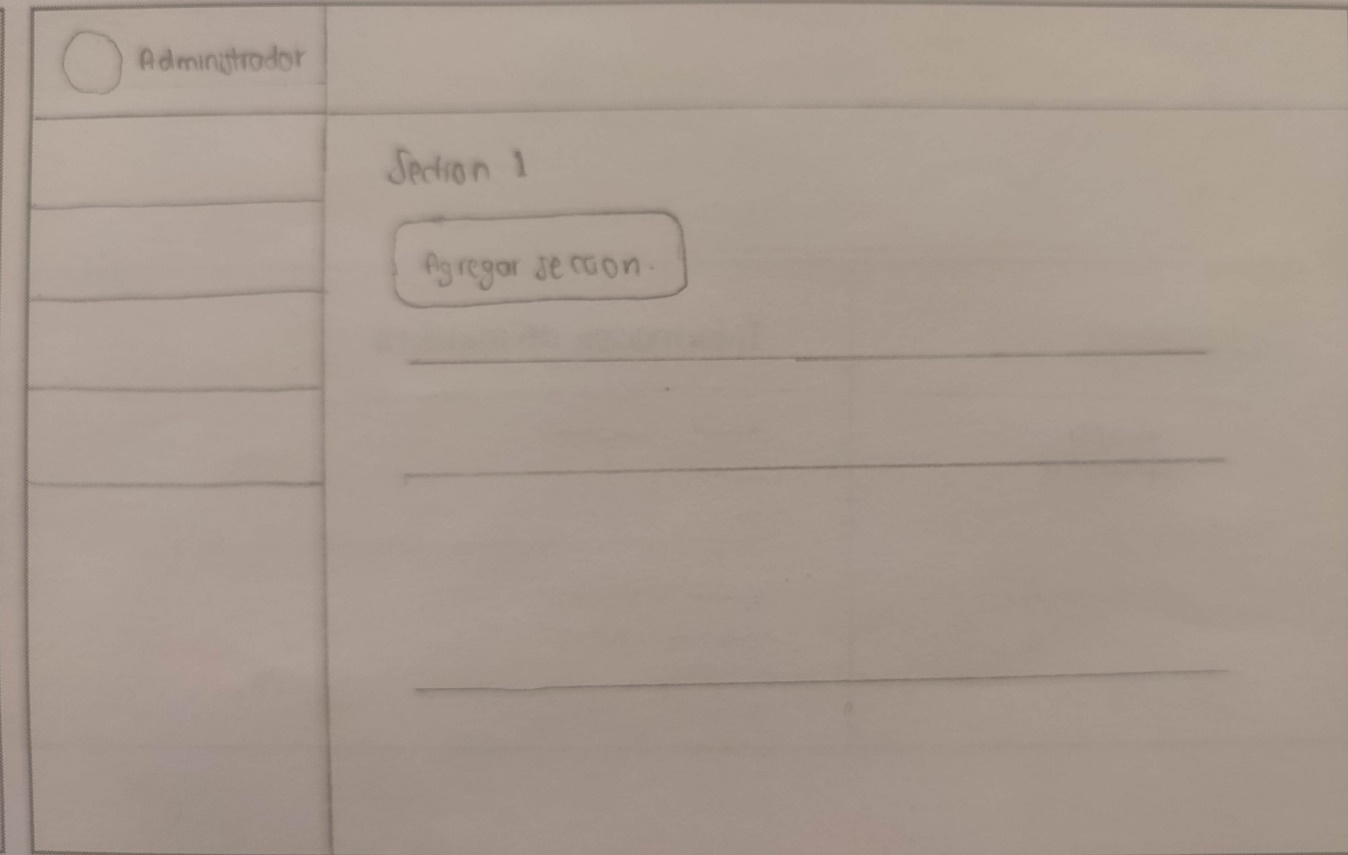 Administrador
Section 1
Agregar seccion.